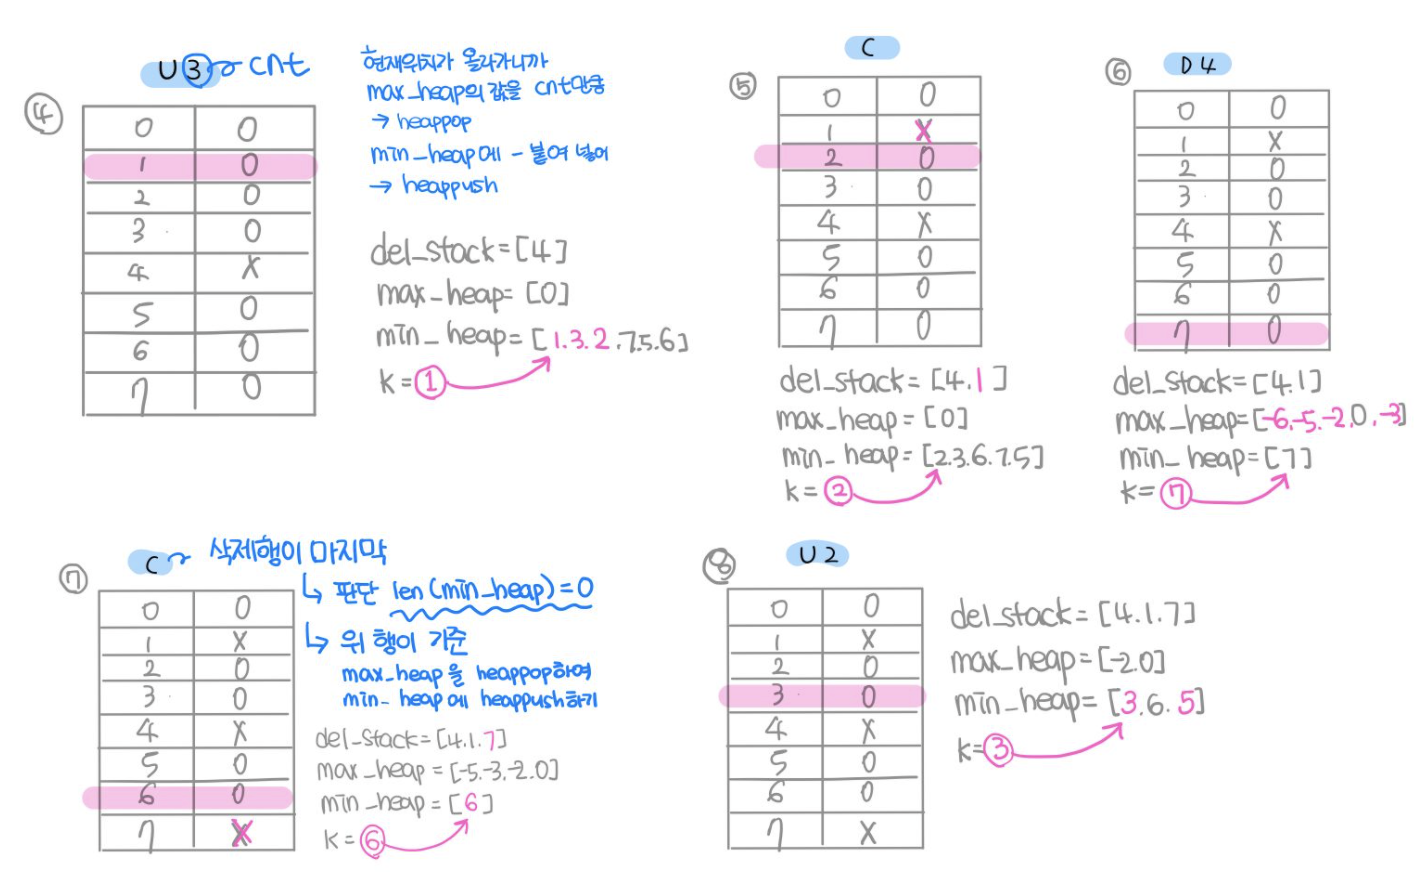 ④
U 3 cnt
현재위치가 올라가니까
max_heap의 값을 cnt만큼
→ heappop
min_heap에 - 붙여 넣어
→ heappush
0 0
1 0
2 0
3 0
4 X
5 0
6 0
7 0
del_stack=[4]
max_heap=[0]
min_heap=[1.3.2.7.5.6]
k=①
⑤
C
0 0
1 X
2 0
3 0
4 X
5 0
6 0
7 0
del_stack=[4.1]
max_heap=[0]
min_heap=[2.3.6.7.5]
k=②
⑥
D 4
0 0
1 X
2 0
3 0
4 X
5 0
6 0
7 0
del_stack=[4.1]
max_heap=[-6.-5.-2.0.-3]
min_heap=[7]
k=⑦
⑦
C 삭제행이 마지막
↳ 판단 len(min_heap)=0
↳ 위 행이 기준
max_heap을 heappop하여
min_heap에 heappush하기
0 0
1 X
2 0
3 0
4 X
5 0
6 0
7 X
del_stack=[4.1.7]
max_heap=[-5.-3.-2.0]
min_heap=[6]
k=⑥
⑧
U 2
0 0
1 X
2 0
3 0
4 X
5 0
6 0
7 X
del_stack=[4.1.7]
max_heap=[-2.0]
min_heap=[3.6.5]
k=③